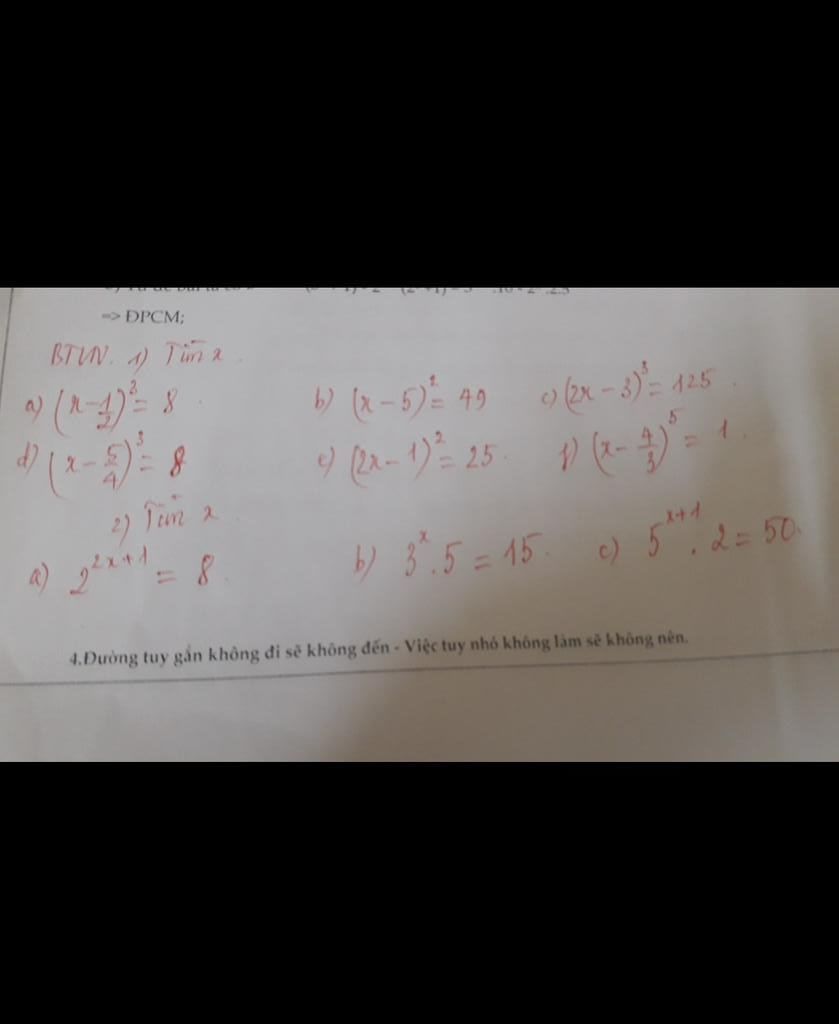 => ĐPCM;
BTVN. 1) Tìm x.
a) (x - 1/2)³ = 8. b) (x - 5)² = 49 c) (2x - 3)³ = 125.
d) (x - 5/4)³ = 8 e) (2x - 1)² = 25. f) (x - 4/3)⁵ = 1.
2) Tìm x
a) 2²ˣ⁺¹ = 8. b) 3ˣ.5 = 15. c) 5ˣ⁺¹.2 = 50.
4.Đường tuy gần không đi sẽ không đến - Việc tuy nhỏ không làm sẽ không nên.